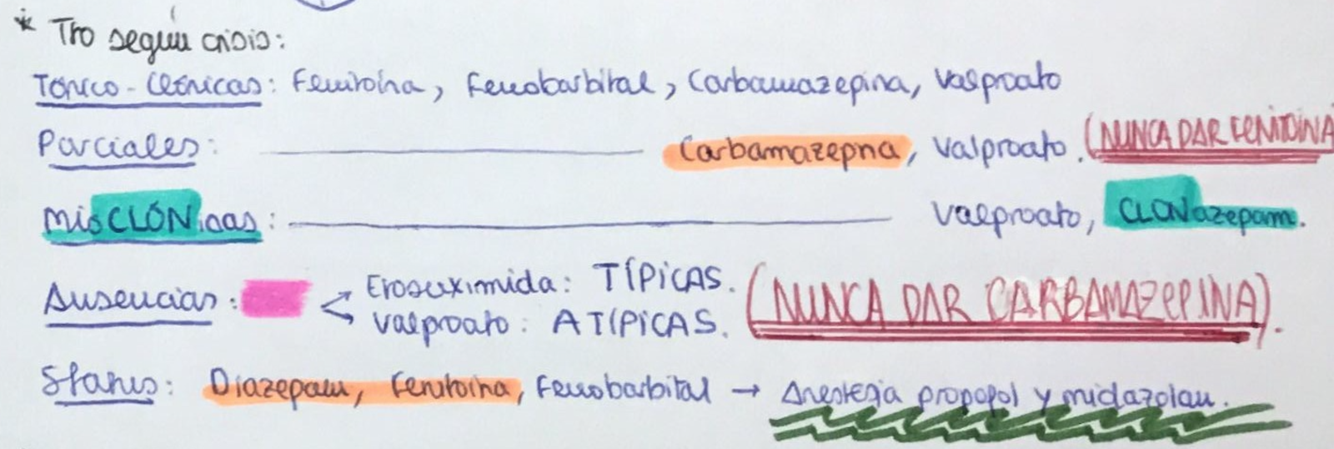 * Tto según crisis:
Tónico-clónicas: Fenitoína, Fenobarbital, Carbamazepina, Valproato
Parciales: Carbamazepina, Valproato. (NUNCA DAR FENITOINA)
MioCLÓNicas: Valproato, CLONazepam.
Ausencias: Etosuximida: TÍPICAS. (NUNCA DAR CARBAMAZEPINA).
Valproato: ATÍPICAS.
Status: Diazepam, Fenitoína, Fenobarbital → Anestesia propofol y midazolam.